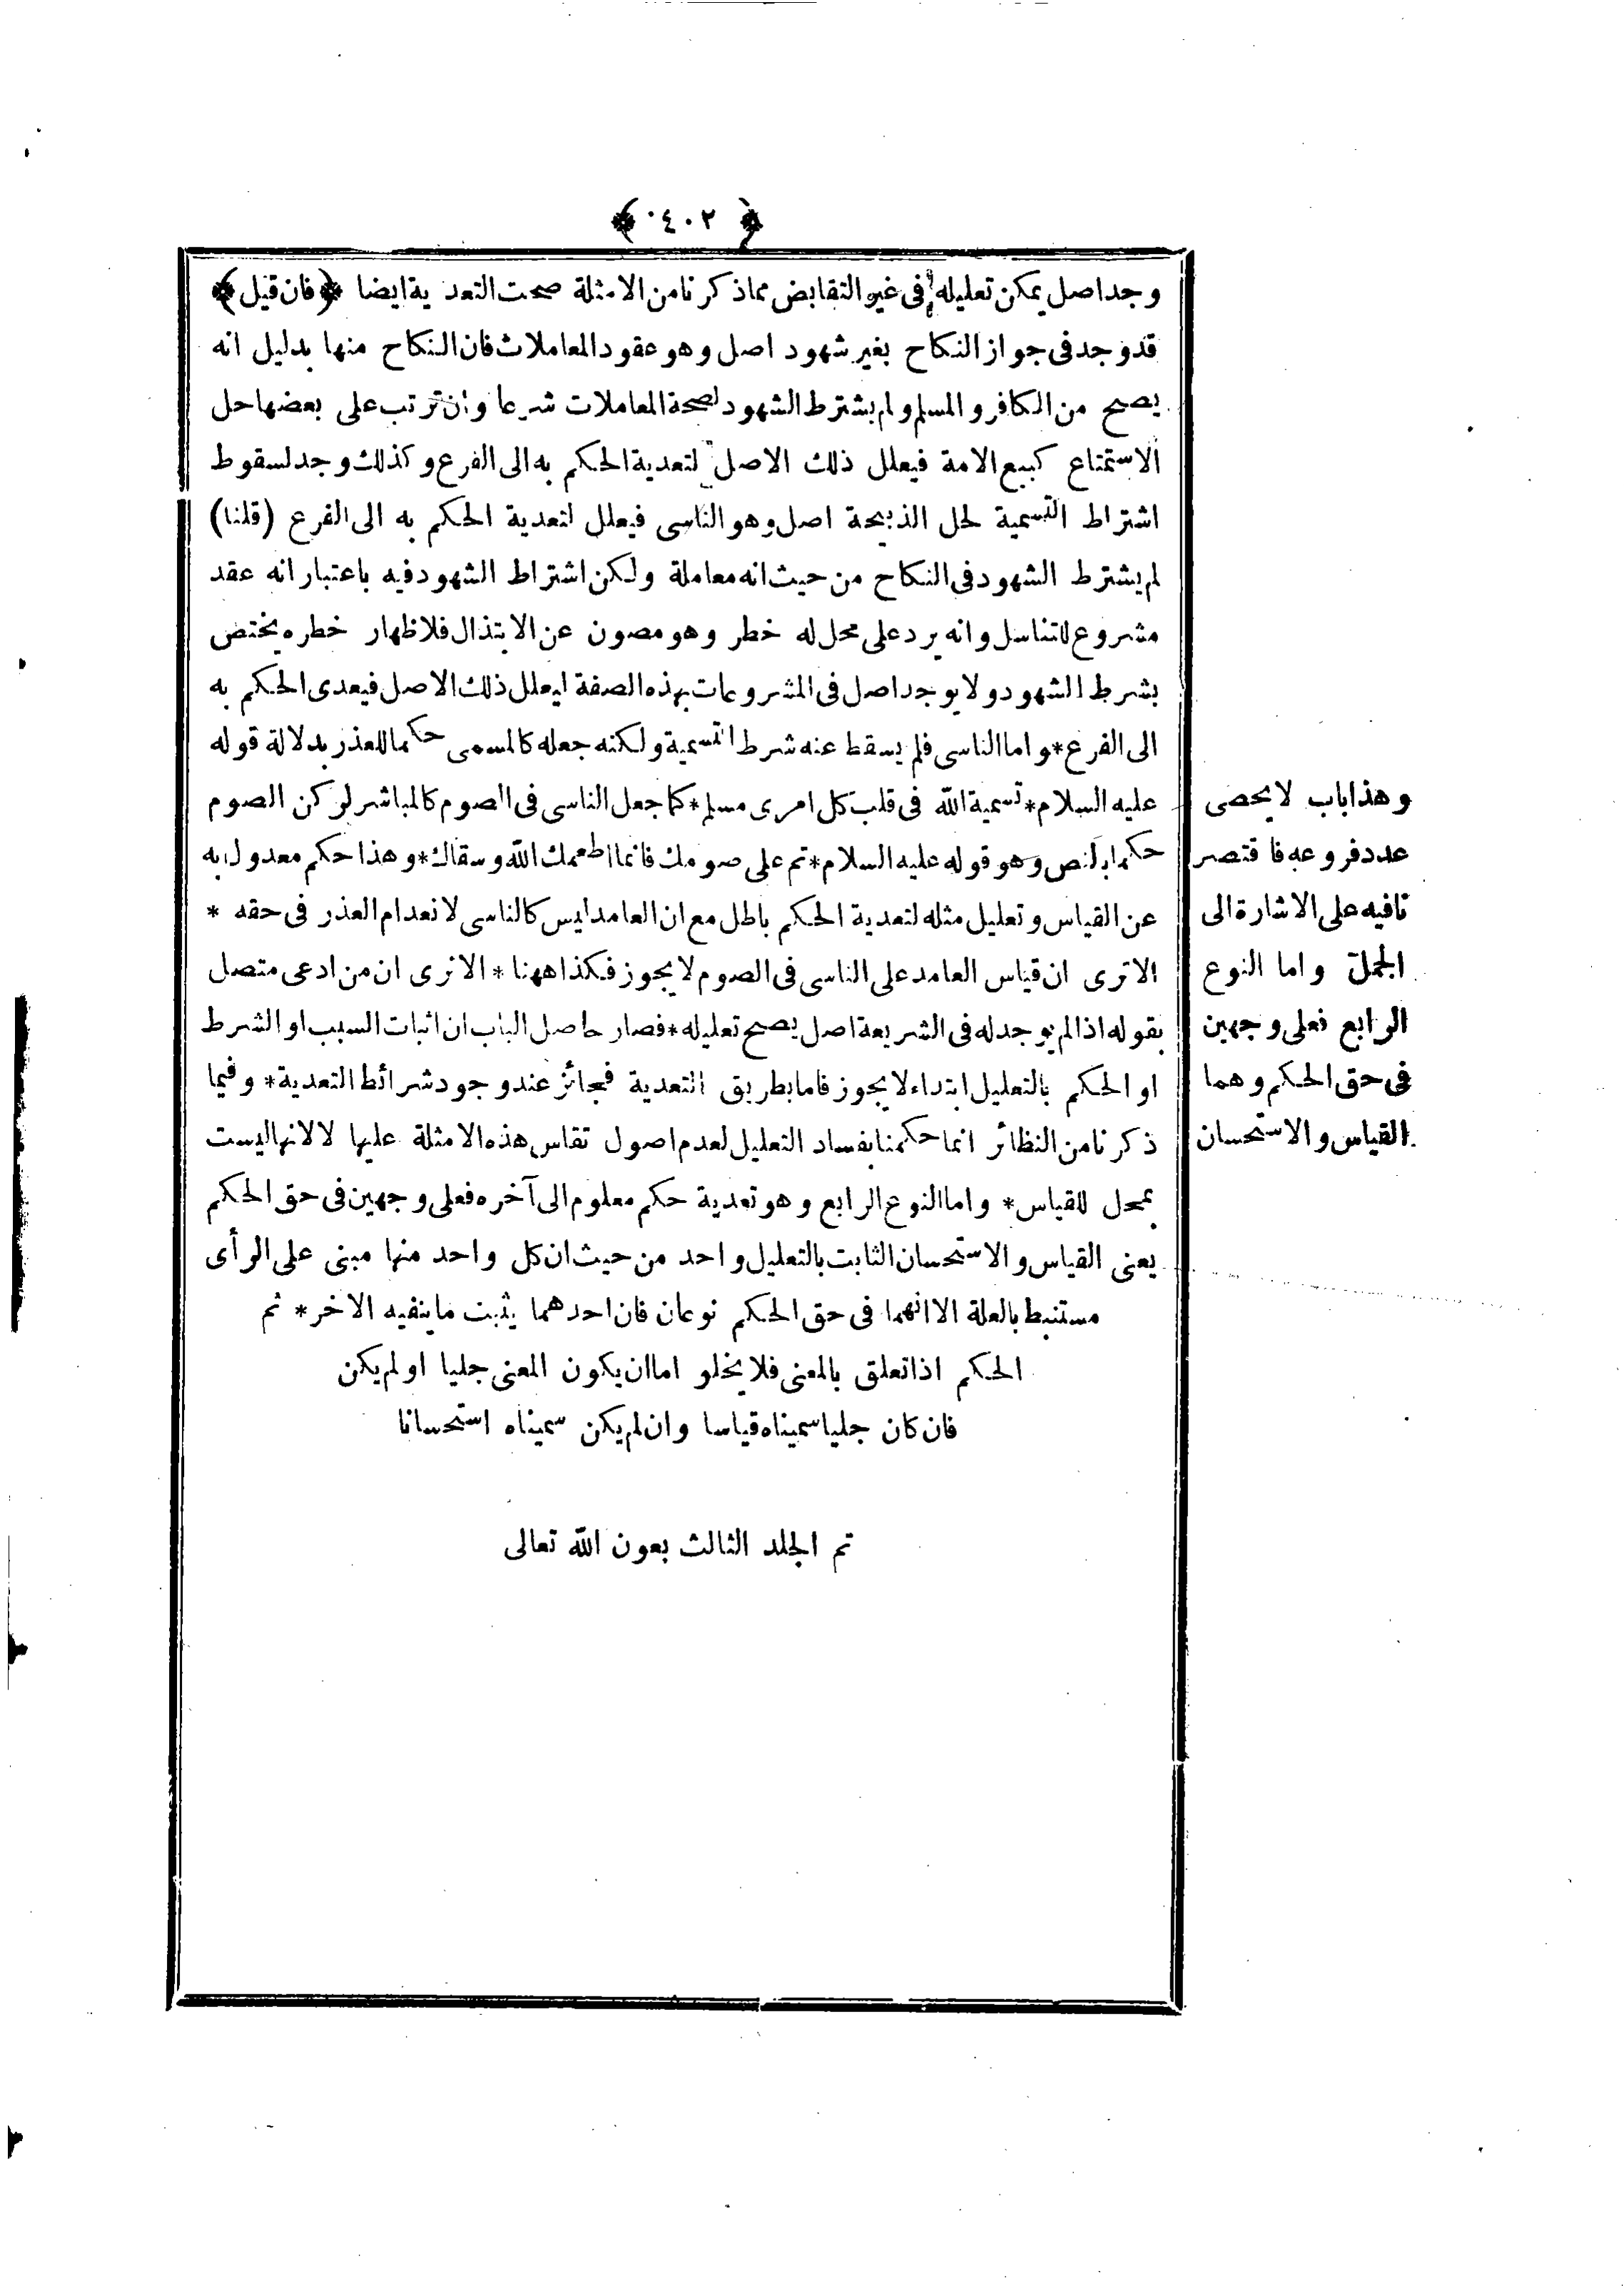 ﴿ ٤٠٢ ﴾
وجد اصل يمكن تعليله فى غير التقابض مما ذكرنا من الامثلة صحت التعدية ايضا ﴿ فان قيل ﴾
قد وجد فى جواز النكاح بغير شهود اصل وهو عقود المعاملات فان النكاح منها بدليل انه
يصح من الكافر والمسلم ولم يشترط الشهود لصحة المعاملات شرعا وان ترتب على بعضها حل
الاستمتاع كبيع الامة فيعلل ذلك الاصل لتعدية الحكم به الى الفرع وكذلك وجد لسقوط
اشتراط التسمية لحل الذبيحة اصل وهو الناسى فيعلل لتعدية الحكم به الى الفرع (قلنا)
لم يشترط الشهود فى النكاح من حيث انه معاملة ولكن اشتراط الشهود فيه باعتبار انه عقد
مشروع للتناسل وانه يرد على محل له خطر وهو مصون عن الابتذال فلاظهار خطره يختص
بشرط الشهود ولا يوجد اصل فى المشروعات بهذه الصفة ليعلل ذلك الاصل فيعدى الحكم به
الى الفرع * واما الناسى فلم يسقط عنه شرط التسمية ولكنه جعله كالمسمى حكما للعذر بدلالة قوله
عليه السلام * تسمية الله فى قلب كل امرى مسلم * كما جعل الناسى فى الصوم كالمباشر لركن الصوم
حكما بالنص وهو قوله عليه السلام * تم على صومك فانما اطعمك الله وسقاك * وهذا حكم معدول به
عن القياس وتعليل مثله لتعدية الحكم باطل مع ان العامد ليس كالناسى لانعدام العذر فى حقه *
الا ترى ان قياس العامد على الناسى فى الصوم لا يجوز فكذا ههنا * الا ترى ان من ادعى متصل
بقوله اذا لم يوجد له فى الشريعة اصل يصح تعليله * فصار حاصل الباب ان اثبات السبب او الشرط
او الحكم بالتعليل ابتداء لا يجوز فاما بطريق التعدية فجائز عند وجود شرائط التعدية * وفيما
ذكرنا من النظائر انما حكمنا بفساد التعليل لعدم اصول تقاس هذه الامثلة عليها لا لانها ليست
بمحل للقياس * واما النوع الرابع وهو تعدية حكم معلوم الى آخره فعلى وجهين فى حق الحكم
يعنى القياس والاستحسان الثابت بالتعليل واحد من حيث ان كل واحد منها مبنى على الرأى
مستنبط بالعلة الا انهما فى حق الحكم نوعان فان احدهما يثبت ما ينفيه الاخر * ثم
الحكم اذا تعلق بالمعنى فلا يخلو اما ان يكون المعنى جليا او لم يكن
فان كان جليا سميناه قياسا وان لم يكن سميناه استحسانا
تم الجلد الثالث بعون الله تعالى
وهذا باب لا يحصى
عدد فروعه فاقتصر
نا فيه على الاشارة الى
الجمل واما النوع
الرابع فعلى وجهين
فى حق الحكم وهما
القياس والاستحسان